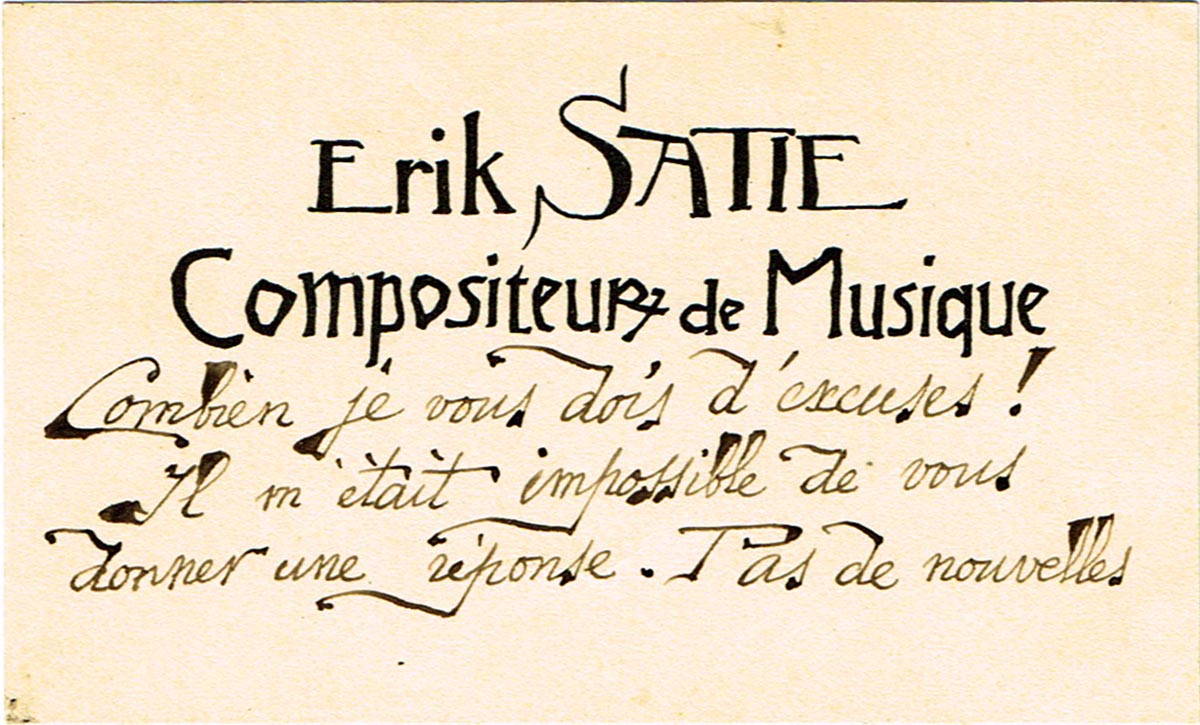 Erik SATIE
Compositeur de Musique
Combien je vous dois d'excuses !
Il m'était impossible de vous
donner une réponse. Pas de nouvelles